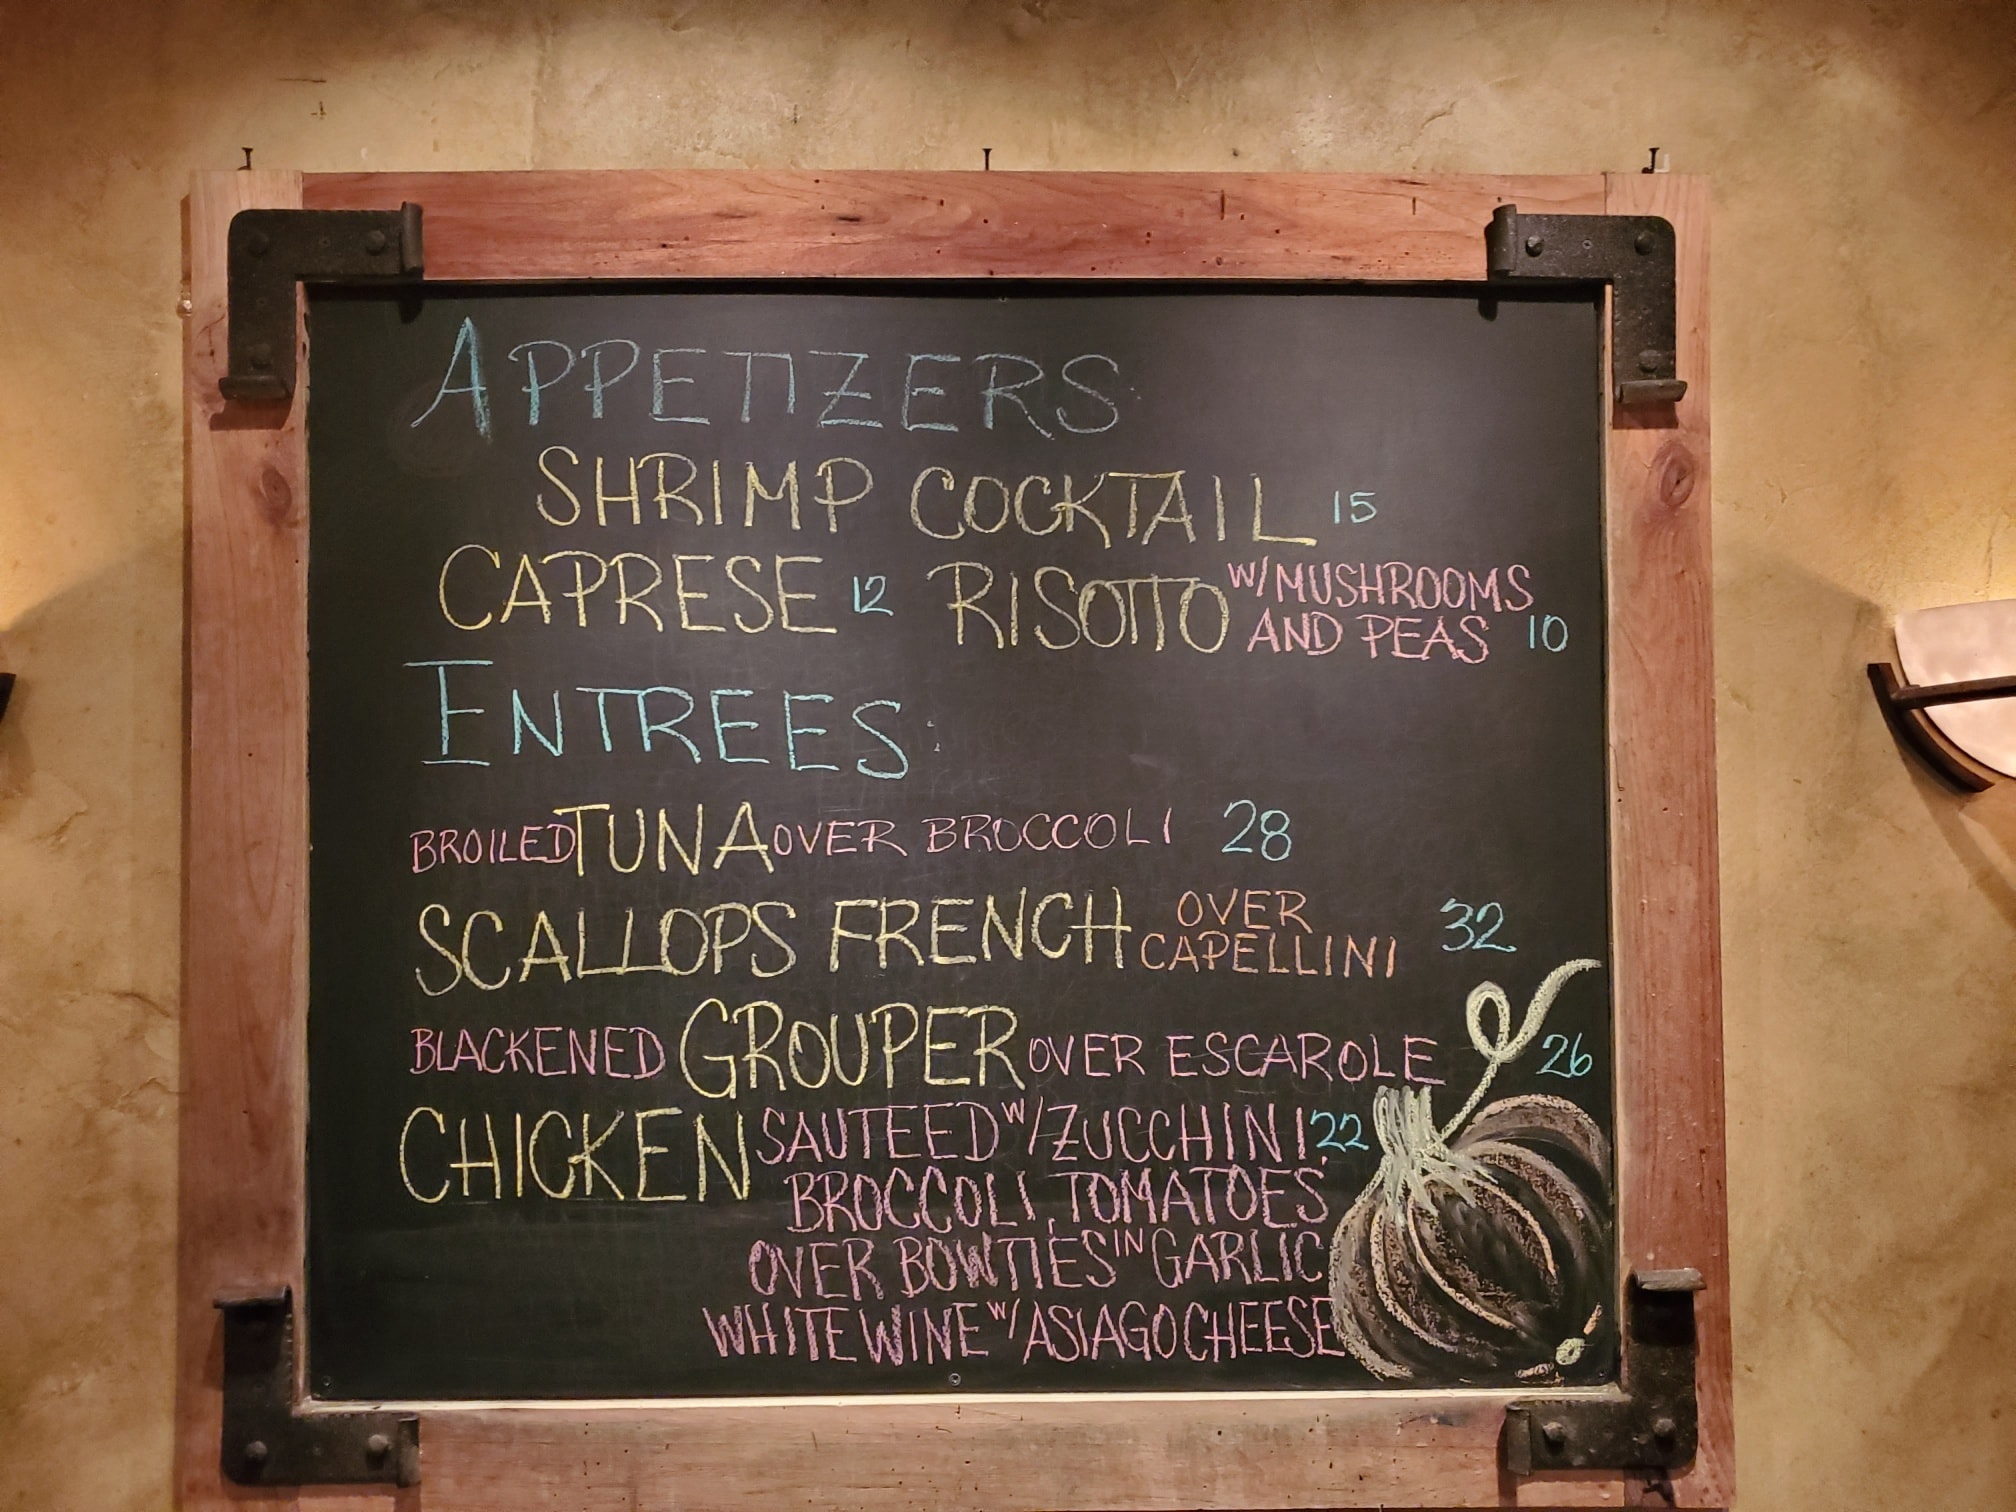 APPETIZERS:
SHRIMP COCKTAIL 15
CAPRESE 12 RISOTTO W/MUSHROOMS
AND PEAS 10
ENTREES:
BROILED TUNA OVER BROCCOLI 28
SCALLOPS FRENCH OVER
CAPELLINI 32
BLACKENED GROUPER OVER ESCAROLE 26
CHICKEN SAUTEED W/ZUCCHINI, 22
BROCCOLI, TOMATOES
OVER BOWTIES IN GARLIC
WHITE WINE W/ASIAGO CHEESE